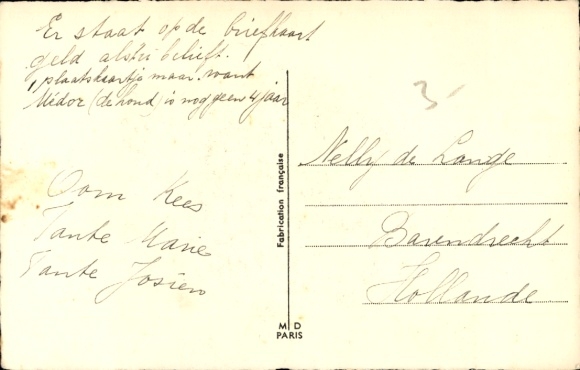 Er staat op de briefkaart
geld alstu belieft.
1 plaatskaartje maar. want
Médor (de hond) is nog geen 4 jaar
Oom Kees
Tante Marie
Tante Josien
Fabrication française
M D
PARIS
3-
Nelly de Lange
Barendrecht
Hollande